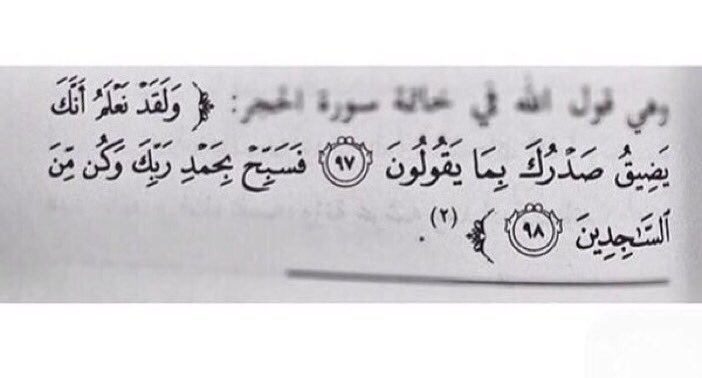 وهي قول الله في خاتمة سورة الحجر: ﴿ وَلَقَدْ نَعْلَمُ أَنَّكَ
يَضِيقُ صَدْرُكَ بِمَا يَقُولُونَ ٩٧ فَسَبِّحْ بِحَمْدِ رَبِّكَ وَكُن مِّنَ
ٱلسَّٰجِدِينَ ٩٨ ﴾ (٢).